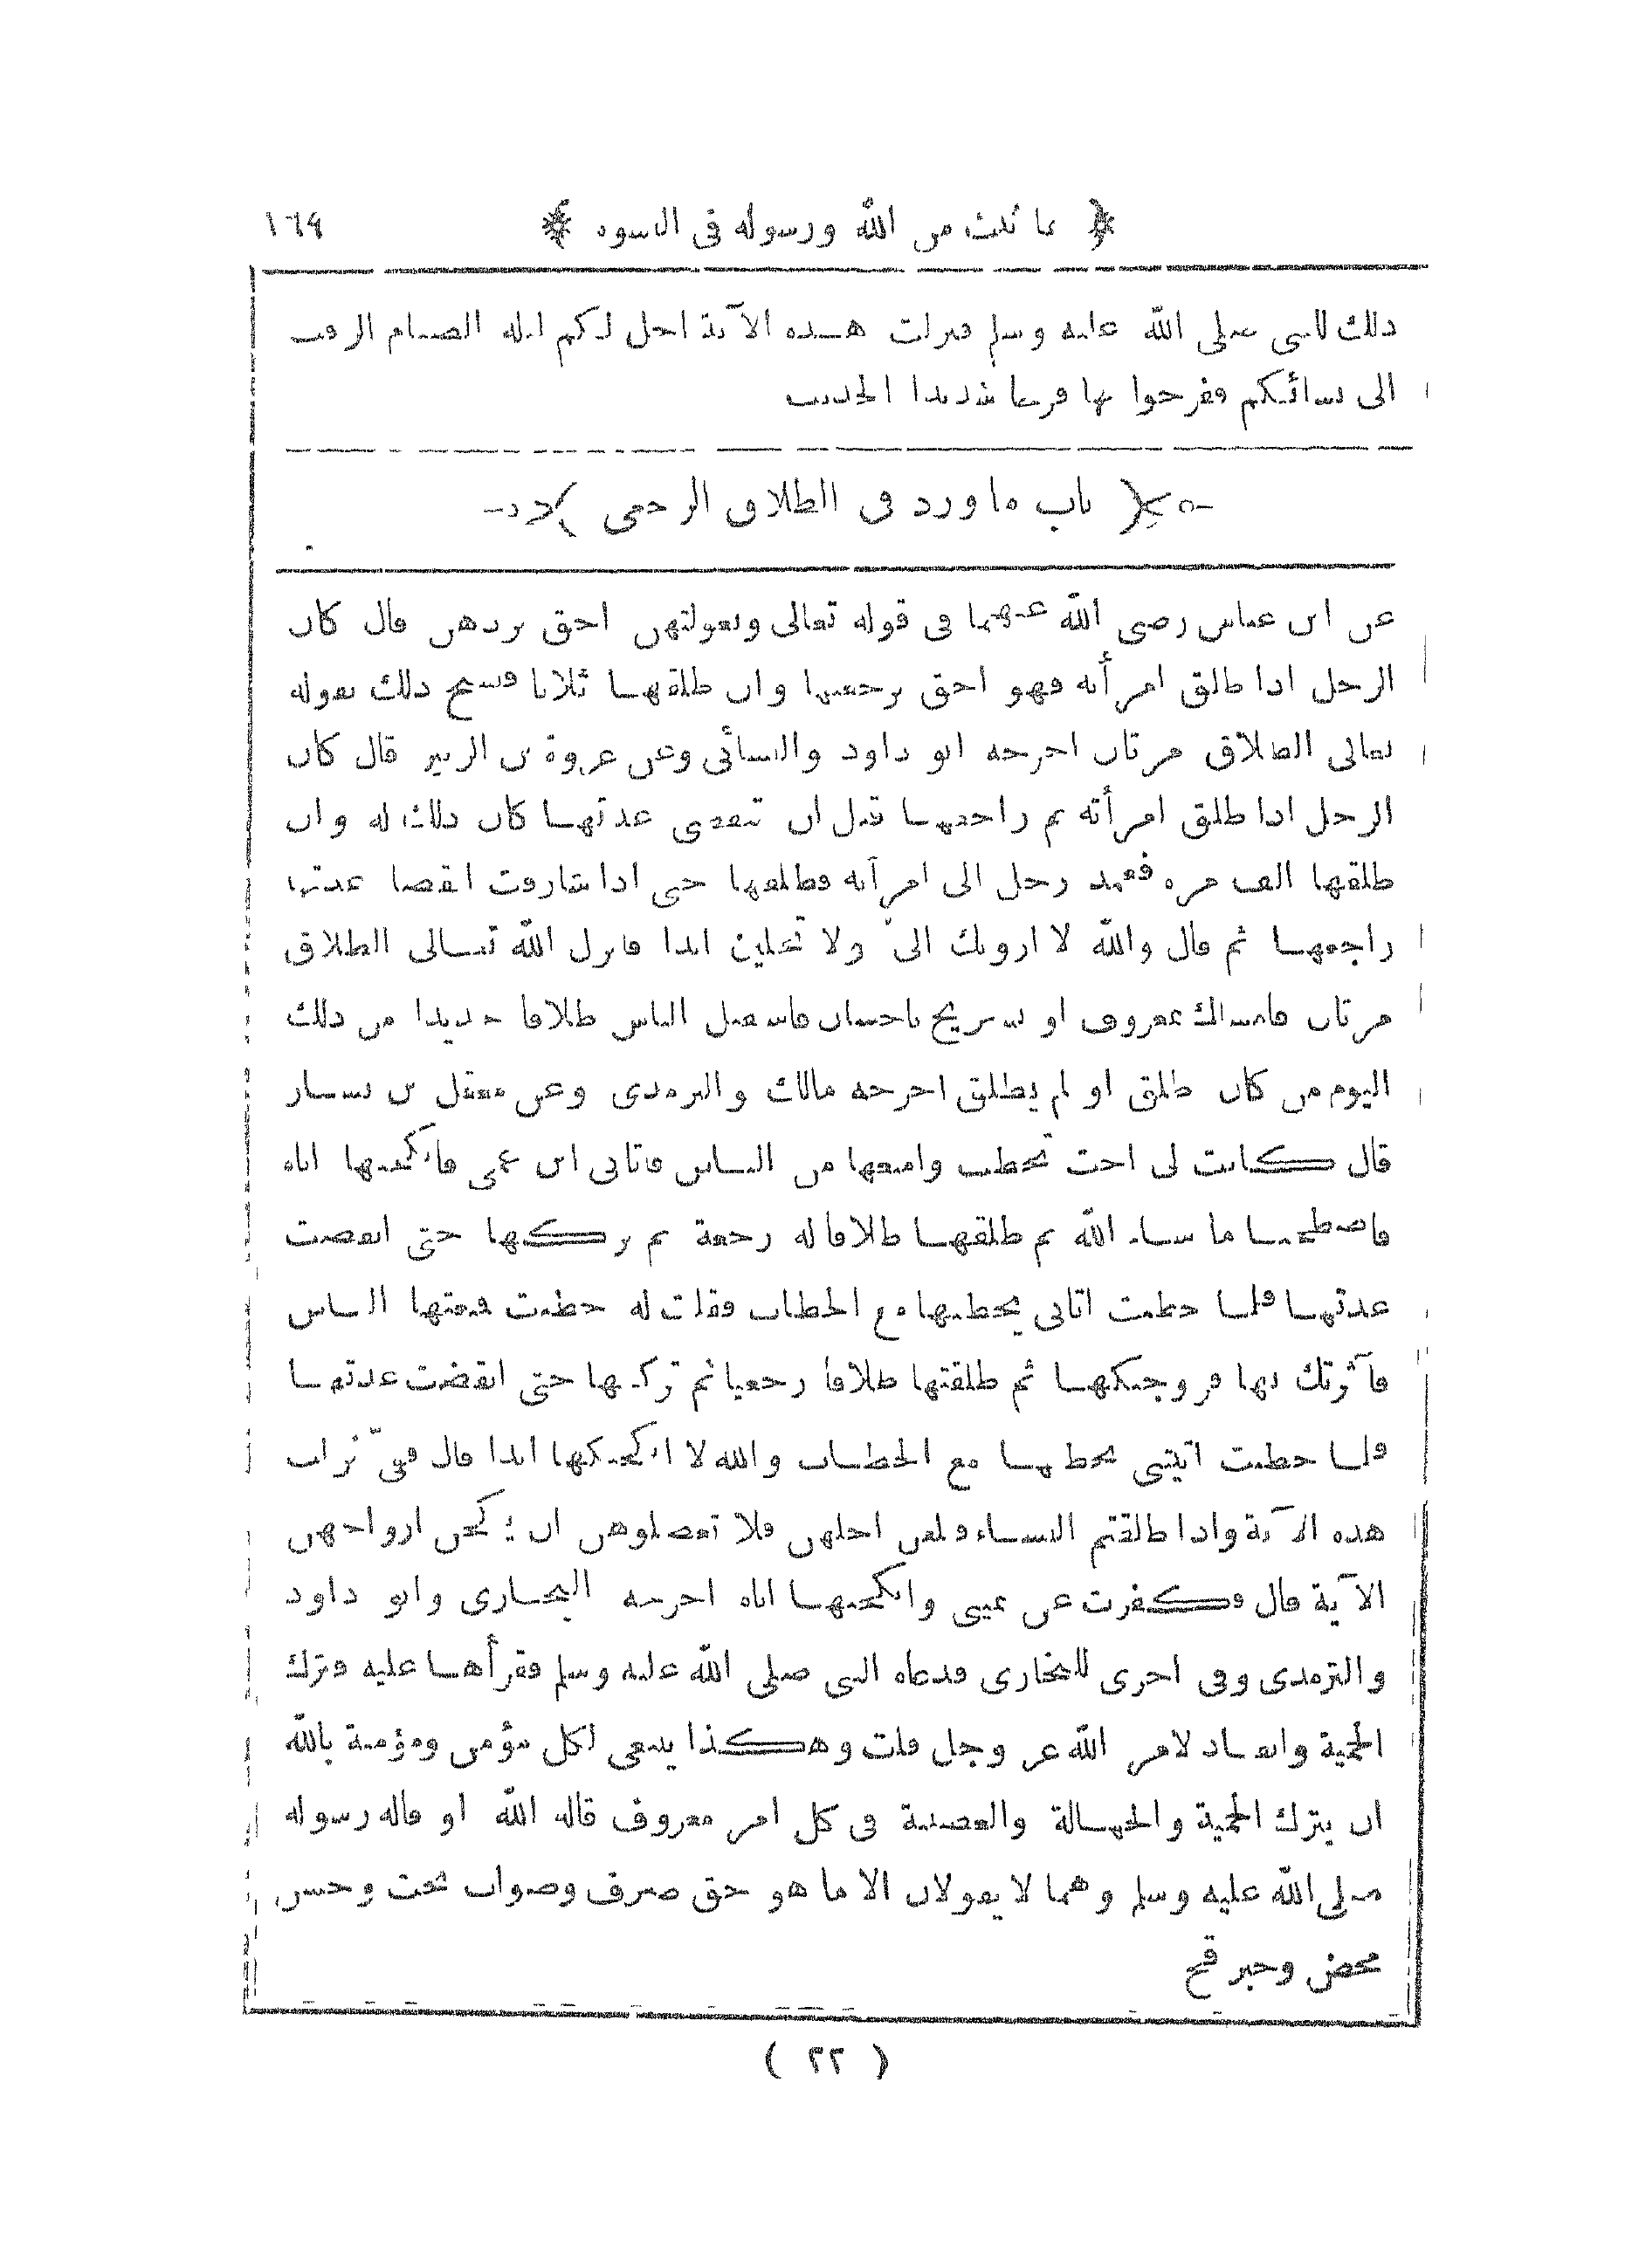 ﴿ ما ثبت من الله ورسوله فى النسوة ﴾ ١٦٩
ذلك للنبى صلى الله عليه وسلم فنزلت هذه الآية احل لكم ليلة الصيام الرفث
الى نسائكم ففرحوا بها فرحا شديدا الحديث
باب ما ورد فى الطلاق الرجعى
عن ابن عباس رضى الله عنهما فى قوله تعالى وبعولتهن احق بردهن قال كان
الرجل اذا طلق امرأته فهو احق برجعتها وان طلقها ثلاثا فنسخ ذلك بقوله
تعالى الطلاق مرتان اخرجه ابو داود والنسائى وعن عروة بن الزبير قال كان
الرجل اذا طلق امرأته ثم راجعها قبل ان تنقضى عدتها كان ذلك له وان
طلقها الف مرة فعمد رجل الى امرأته فطلقها حتى اذا شارفت انقضا عدتها
راجعها ثم قال والله لا ارويك الىّ ولا تحلين ابدا فانزل الله تعالى الطلاق
مرتان فامساك بمعروف او تسريح باحسان فاستقبل الناس طلاقا جديدا من ذلك
اليوم من كان طلق او لم يطلق اخرجه مالك والترمذى وعن معقل بن يسار
قال كانت لى اخت تخطب وامنعها من الناس فاتانى ابن عمى فانكحتها اياه
فاصطحبا ما شاء الله ثم طلقها طلاقا له رجعة ثم تركها حتى انقضت
عدتها فلما خطبت اتانى يخطبها مع الخطاب فقلت له خطبت فمنعتها الناس
فآثرتك بها فزوجتكها ثم طلقتها طلاقا رجعيا ثم تركتها حتى انقضت عدتها
فلما خطبت اتيتنى تخطبها مع الخطاب والله لا انكحتكها ابدا قال ففىّ نزلت
هذه الآية واذا طلقتم النساء فبلغن اجلهن فلا تعضلوهن ان ينكحن ازواجهن
الآية قال فكفرت عن يمينى وانكحتها اياه اخرجه البخارى وابو داود
والترمذى وفى اخرى للبخارى فدعاه النبى صلى الله عليه وسلم فقرأها عليه فترك
الحمية وانقاد لامر الله عز وجل قلت وهكذا ينبغى لكل مؤمن ومؤمنة بالله
ان يترك الحمية والجهالة والعصبية فى كل امر معروف قاله الله او قاله رسوله
صلى الله عليه وسلم وهما لا يقولان الا ما هو حق صرف وصواب بحت وحسن
محض وخير قح
( ٢٢ )